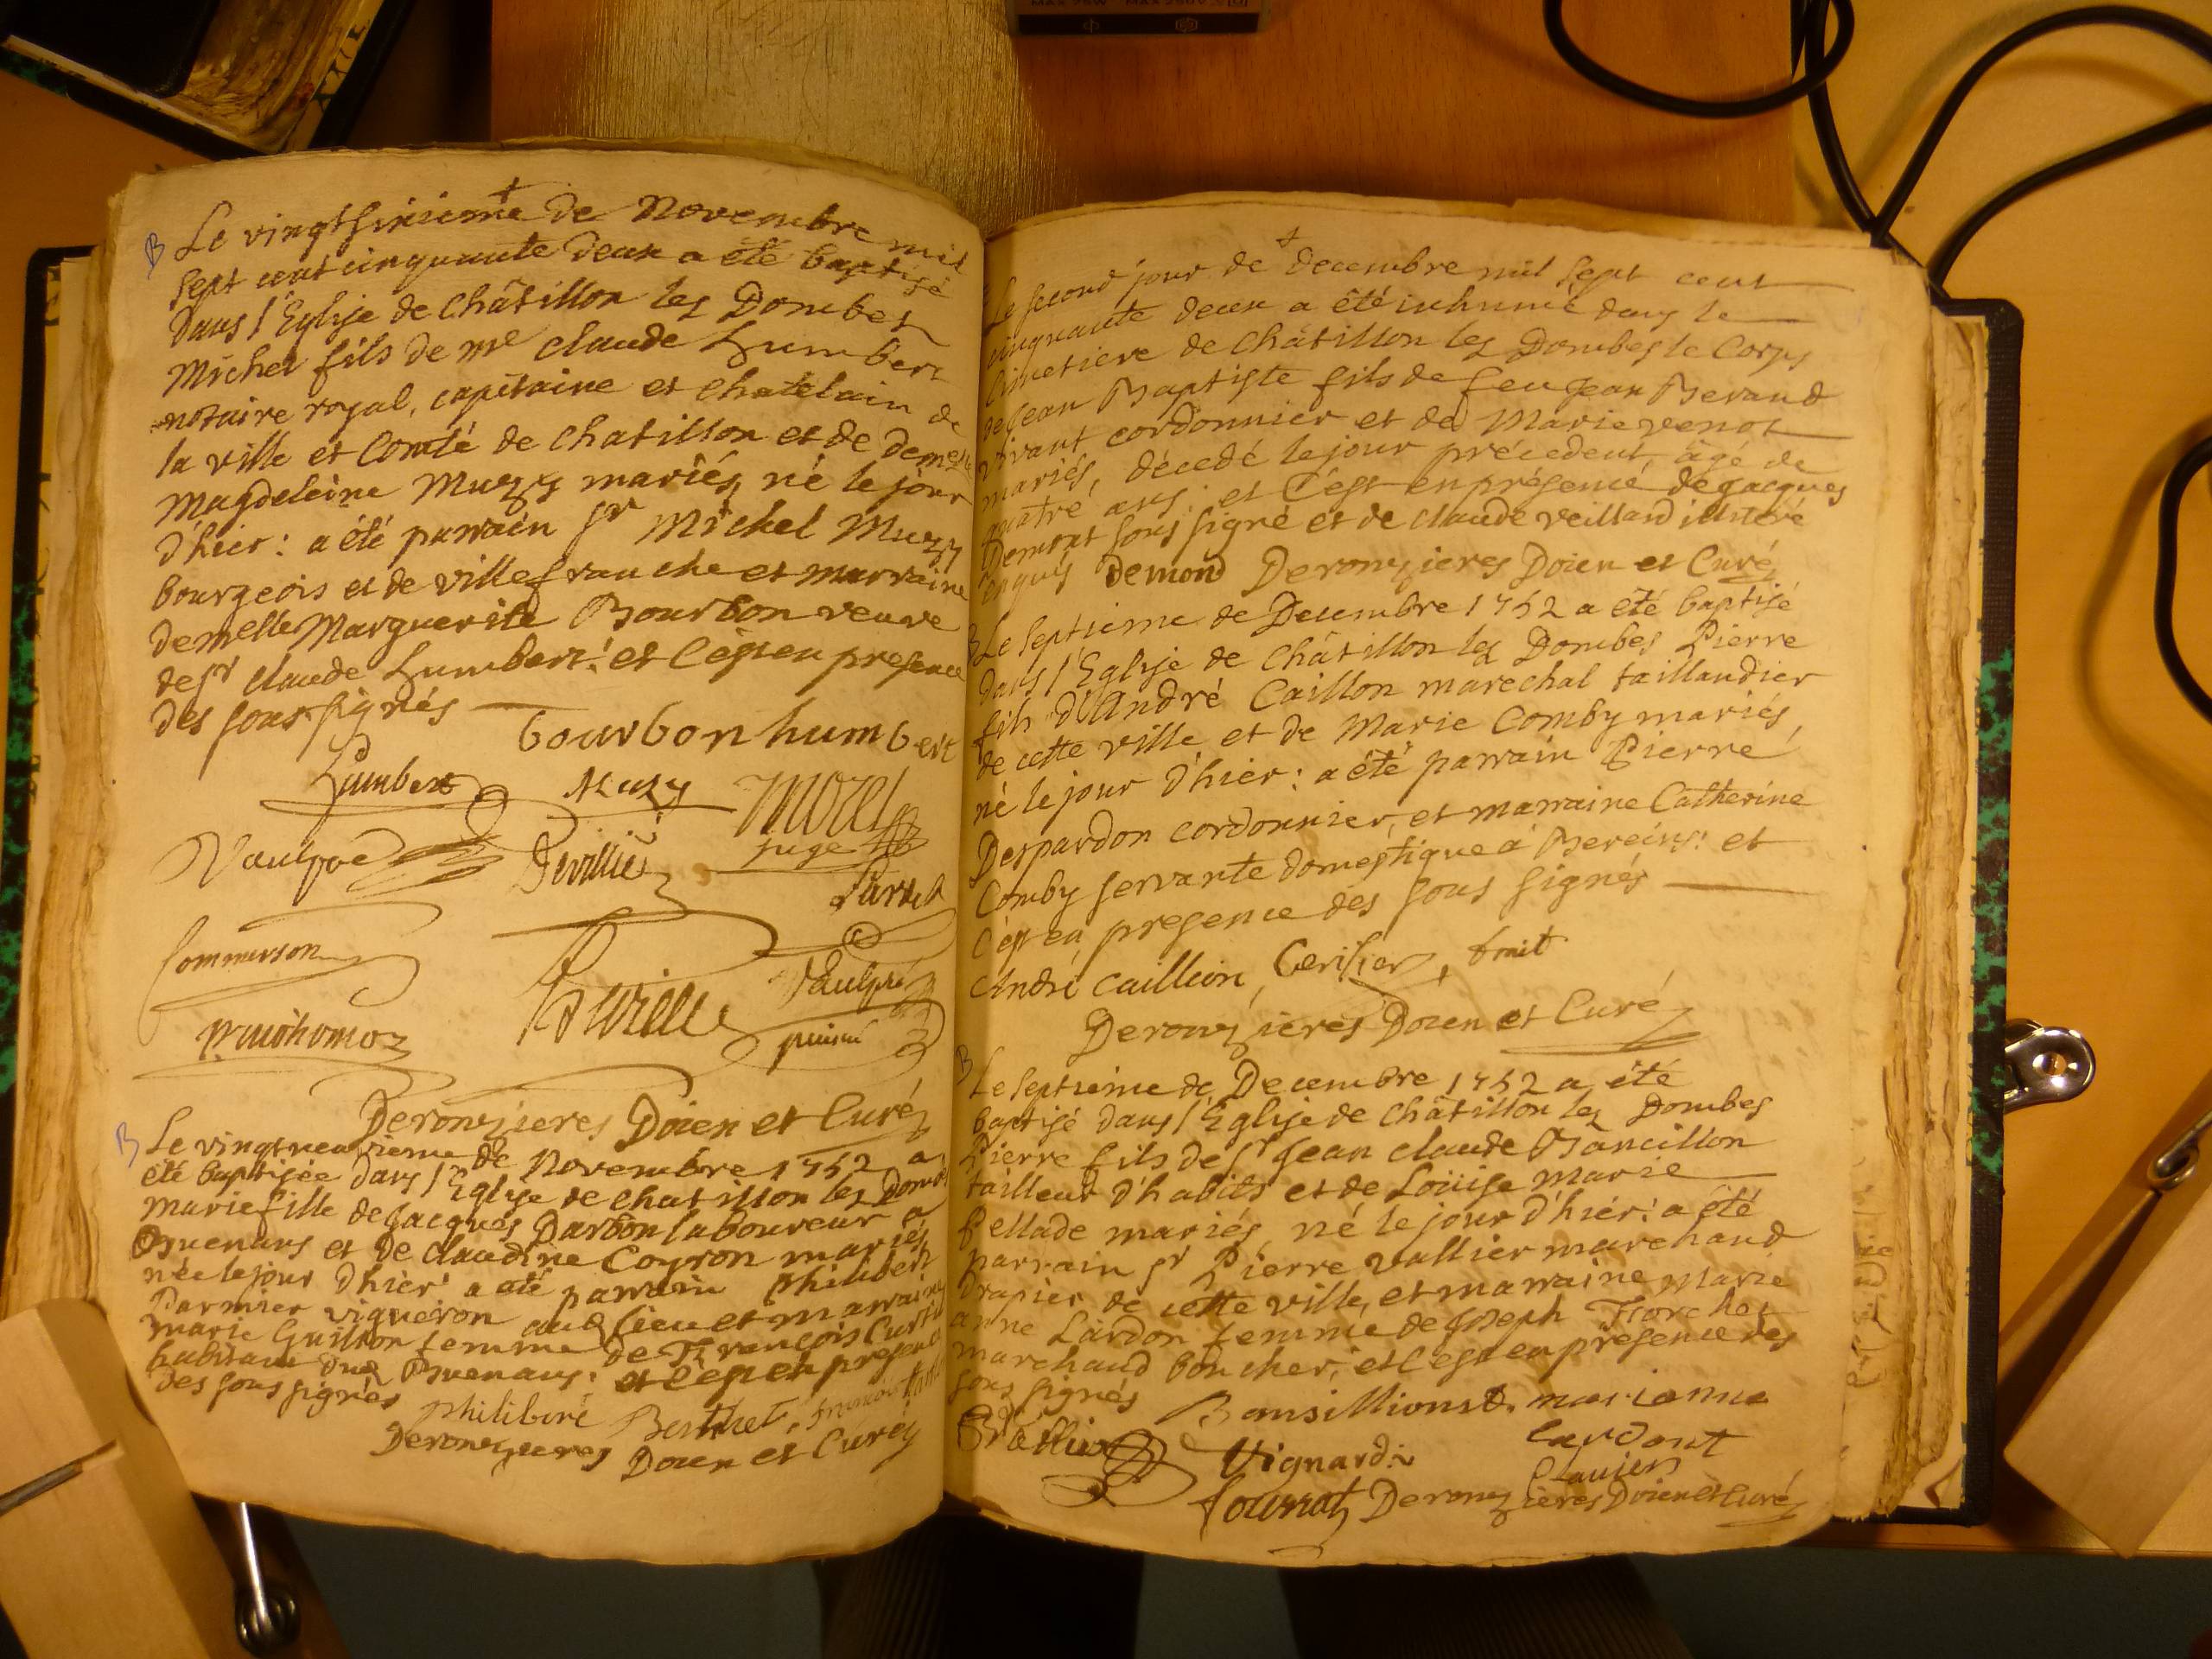 B Le vingtsixieme de Novembre mil
sept cent cinquante deux a été baptisé
dans l'Eglise de Châtillon les Dombes
Michel fils de me claude humbert
notaire royal, capitaine et chatelain de
la ville et Comté de chatillon et de demelle
Magdeleine Muzy mariés, né le jour
d'hier: a été parrain sr Michel Muzy
bourgeois et de ville franche et marraine
demelle Marguerite Bourbon veuve
de sr claude humbert: et c'est en presence
des sous signés
bourbon humbert
humbert Muzy morel
juge
Vaulpré Deville
Commerson
Vaulpré
prudhomo
Derouzieres Doien et Curé
B Le vingtneuvieme de Novembre 1752 a
été baptisée dans l'Eglise de chatillon les Domb
marie fille de jacques Darbon laboureur a
Buenans et de claudine Coyron mariés
née le jour d'hier: a été parrain philibert
vigneron lieu et marraine
marie Guillon femme de François Curt
habitant Buenans: et c'est en presence
des sous signés
philibert Berthet, francois
Derouzieres Doien et Curé
Le second jour de decembre mil sept cent
cinquante deux a été inhumé dans le
Cimetiere de châtillon les Dombes le Corps
de jean Baptiste fils de feu jean Beraud
vivant cordonnier et de Marie venot
mariés, décedé le jour précedent, âgé de
quatre ans: et c'est en présence de jacques
Demont sous signé et de claude veillard illiteré
enquis Demond Derouzieres Doien et Curé
B Le septieme de Decembre 1752 a été baptisé
dans l'Eglise de châtillon les Dombes Pierre
fils d'André Caillon marechal taillandier
de cette ville et de Marie Comby mariés,
né le jour d'hier: a été parrain Pierre
Despardon cordonnier, et marraine Catherine
Comby servante domestique à Bereins: et
c'est en presence des sous signés
André caillion, Cerisier, trait
Derouzieres Doien et Curé
B Le septieme de Decembre 1752 a été
baptisé dans l'Eglise de châtillon les Dombes
Pierre fils de sr jean claude Bancillon
tailleur d'habits et de Loüise marie
Pellade mariés, né le jour d'hier: a été
parrain sr Pierre vallier marchand
drapier de cette ville, et marraine marie
anne Lardon femme de joseph Florchet
marchand boucher, et c'est en presence des
sous signés Bansillion marianne
vallier Vignard lardont
Derouzieres Doien et Curé